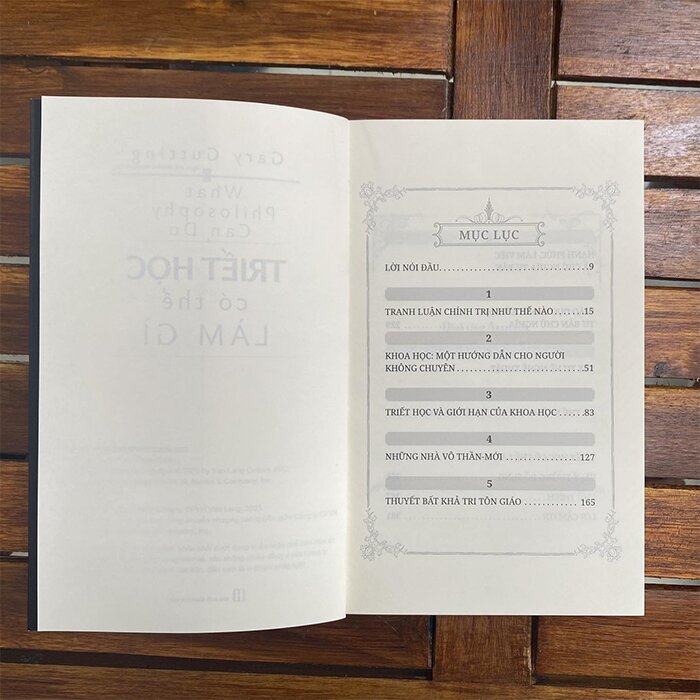 MỤC LỤC
LỜI NÓI ĐẦU.............................9
1
TRANH LUẬN CHÍNH TRỊ NHƯ THẾ NÀO......15
2
KHOA HỌC: MỘT HƯỚNG DẪN CHO NGƯỜI
KHÔNG CHUYÊN.........................51
3
TRIẾT HỌC VÀ GIỚI HẠN CỦA KHOA HỌC.....83
4
NHỮNG NHÀ VÔ THẦN-MỚI...............127
5
THUYẾT BẤT KHẢ TRI TÔN GIÁO............165
Gary Gutting
What
Philosophy
Can Do
TRIẾT HỌC
có thể
LÀM GÌ